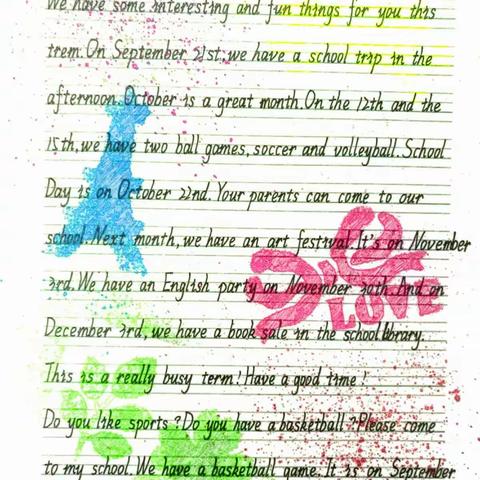 We have some interesting and fun things for you this
trem. On September 21st, we have a school trip in the
afternoon. October is a great month. On the 12th and the
15th, we have two ball games, soccer and volleyball. School
Day is on October 22nd. Your parents can come to our
school. Next month, we have an art festival. It's on November
3rd. We have an English party on November 30th. And on
LOVE
December 3rd, we have a book sale in the school library.
This is a really busy term! Have a good time!
Do you like sports? Do you have a basketball? Please come
to my school. We have a basketball game. It is on September